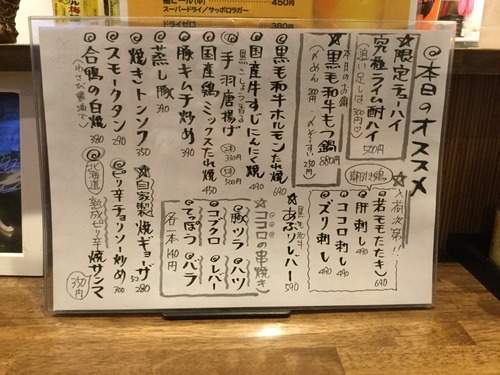 瓶ビール(中) 450円
スーパードライ/サッポロラガー
ドライゼロ 380円
◎本日のオススメ
☆限定チューハイ
究極ライム酎ハイ
500円
追い足しは300円
☆入荷次第!!
朝引き鶏
◎若ももたたき 690
◎肝刺し 490
◎ココロ刺し 490
◎ズリ刺し 490
本日のお鍋
☆黒毛和牛もつ鍋 880円
〆めん 200円
〆ぞうすい 250円
黒毛和牛
☆あぶりレバー 590
◎黒毛和牛ホルモンたれ焼 690
◎国産牛すじにんにく焼 490
黒こしょう香る
◎手羽唐揚げ
3コ 330円
5コ 500円
◎国産鶏ミックスたれ焼 450
◎豚キムチ炒め 390
◎蒸し豚 390
◎焼きトンソク 350
◎スモークタン 290
◎合鴨の白焼 380
(わさび醤油で)
☆ココロの串焼き
豚ヅラ
ハツ
コブクロ
レバー
てっぽう
バラ
各一本 140円
☆自家製 焼ギョーザ 5コ 280
◎ピリ辛チョリソー炒め 300
◎北海道 熟成ピリ辛焼サンマ 350円